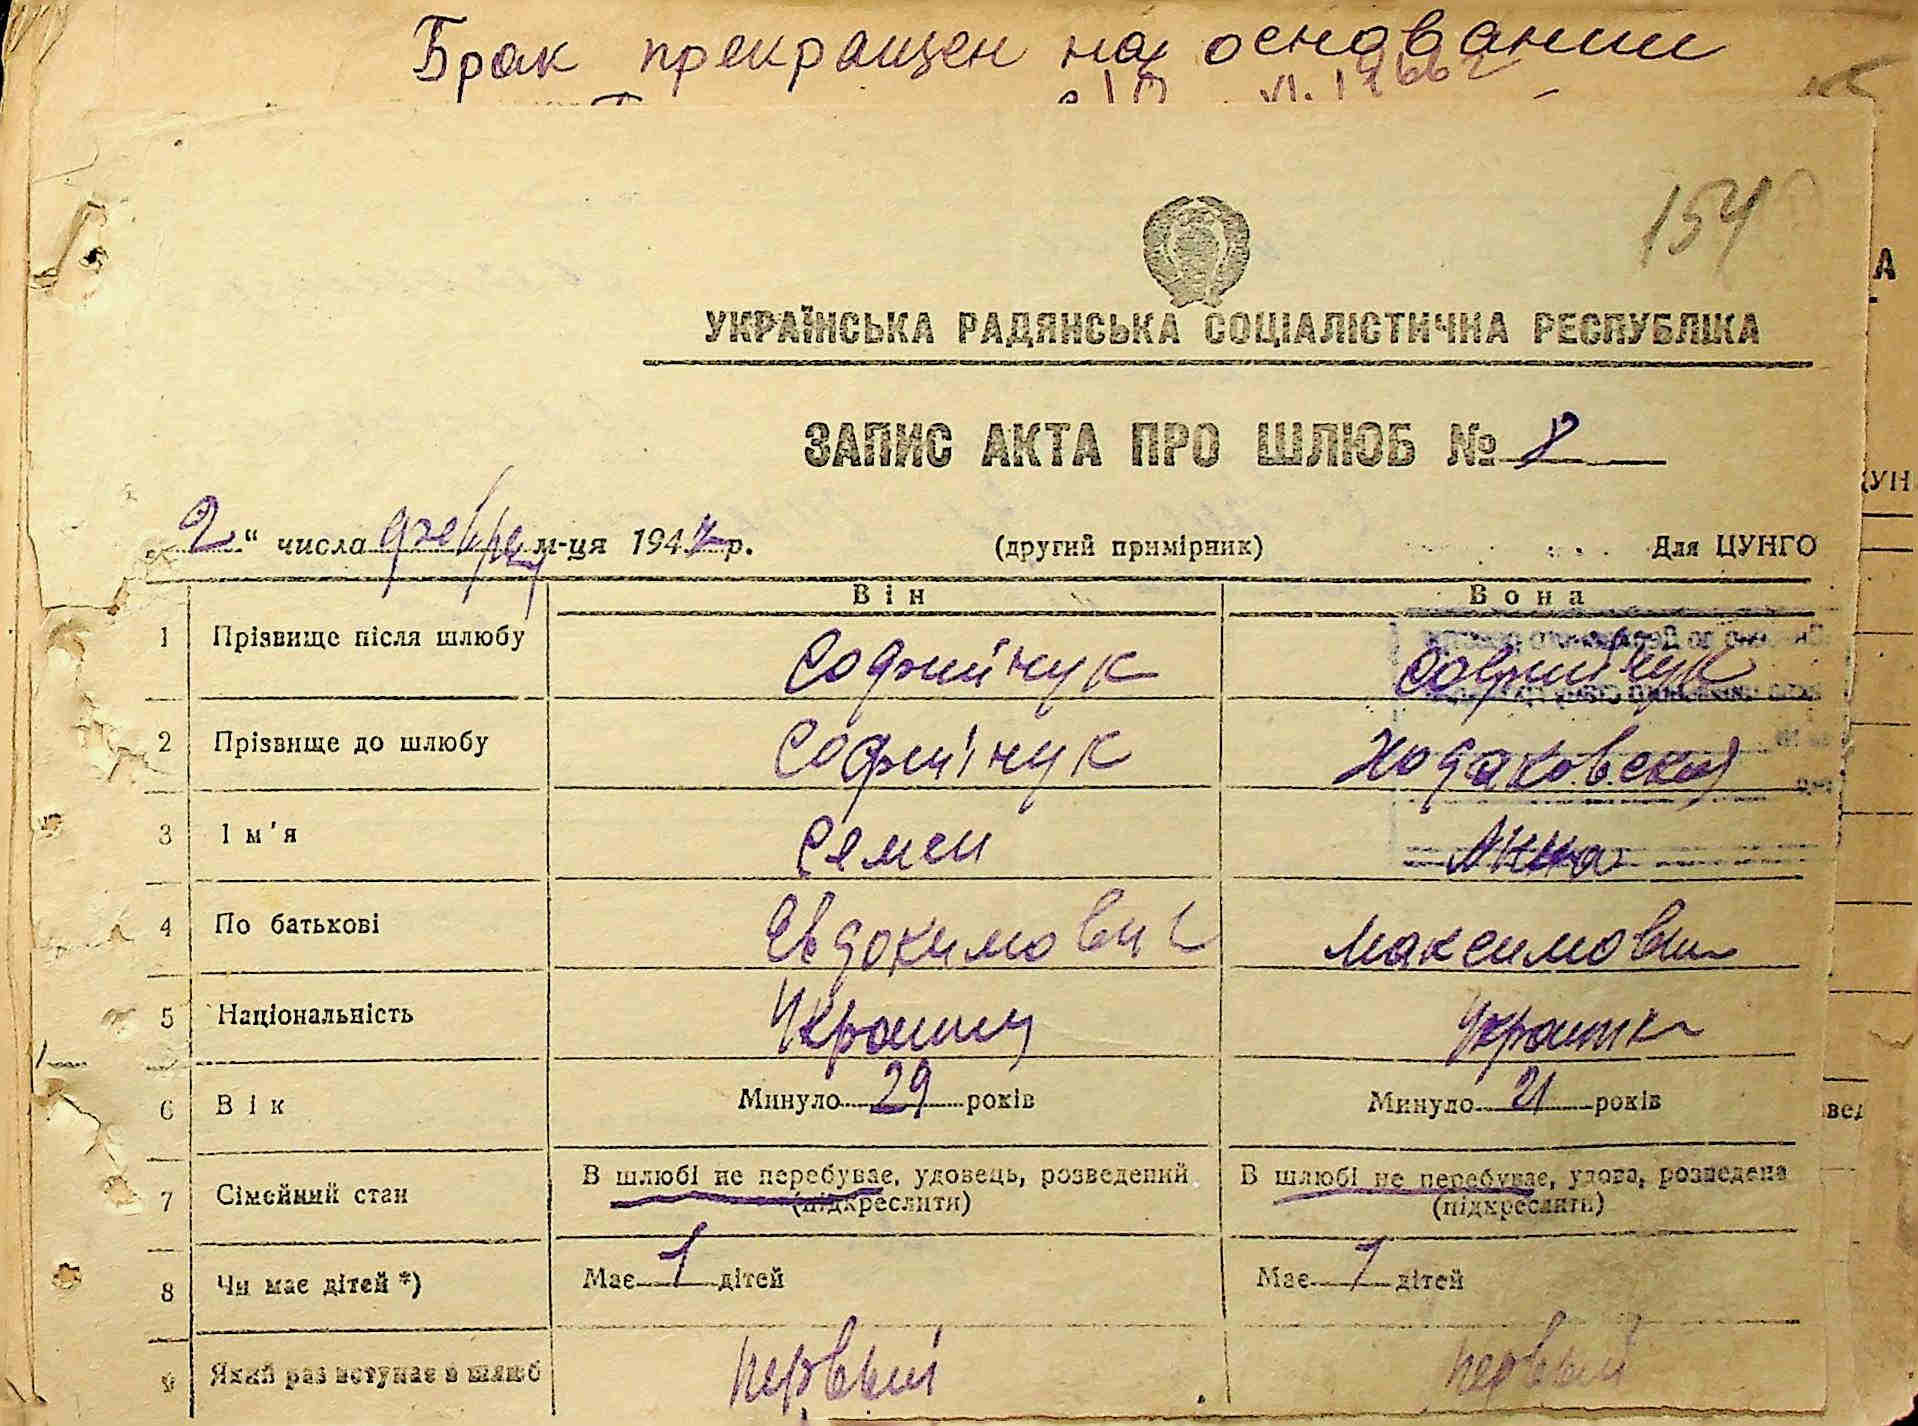 Брак прекращен на основании
1966г
154
А
УКРАЇНСЬКА РАДЯНСЬКА СОЦІАЛІСТИЧНА РЕСПУБЛІКА
ЗАПИС АКТА ПРО ШЛЮБ № 8
„2“ числа м-ця 194 р. (другий примірник) Для ЦУНГО
Він Вона
1 Прізвище після шлюбу Софийчук Софийчук
2 Прізвище до шлюбу Софийчук Ходаковская
3 Ім'я Семен Анна
4 По батькові Евдокимович Максимовн
5 Національність
6 Вік Минуло 29 років Минуло 21 років
7 Сімейний стан В шлюбі не перебуває, удовець, розведений (підкреслити) В шлюбі не перебуває, удова, розведена (підкреслити)
8 Чи має дітей *) Має 1 дітей Має 1 дітей
9 Який раз вступає в шлюб первый первый